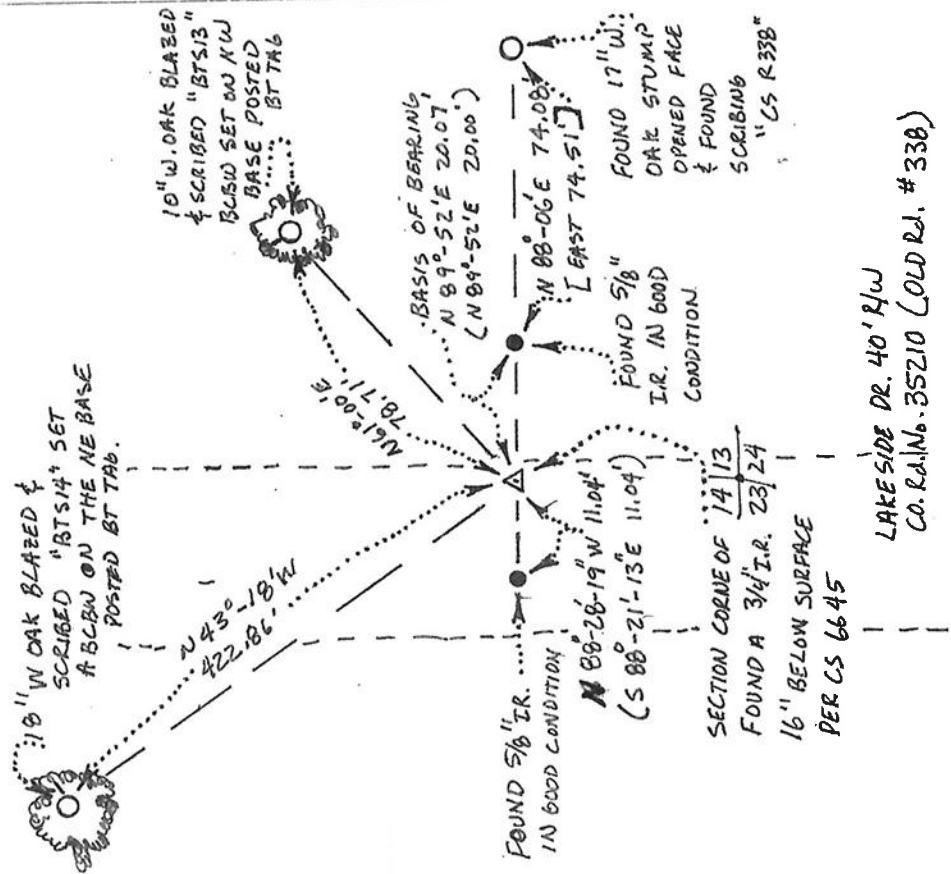 18" W OAK BLAZED &
SCRIBED "BTS14" SET
A BCBW ON THE NE BASE
POSTED BT TAG.
10" W. OAK BLAZED
& SCRIBED "BTS13"
BCBW SET ON NW
BASE POSTED
BT TAG
N 43°-18' W
422.86'
N61°-00' E
78.71'
BASIS OF BEARING,
N 89°-52' E 20.07
(N 89°-52' E 20.00')
N 88°-06' E 74.08'
[EAST 74.51']
FOUND 17" W.
OAK STUMP
OPENED FACE
& FOUND
SCRIBING
"CS R338"
FOUND 5/8"
I.R. IN GOOD
CONDITION.
FOUND 5/8" I.R.
IN GOOD CONDITION
N 88°-28'-19" W 11.04'
(S 88°-21'-13" E 11.04')
SECTION CORNE OF 14 13
23 24
FOUND A 3/4" I.R.
16" BELOW SURFACE
PER CS 6645
LAKESIDE DR. 40' R/W
CO. Rd. No. 35210 (OLD Rd. # 338)